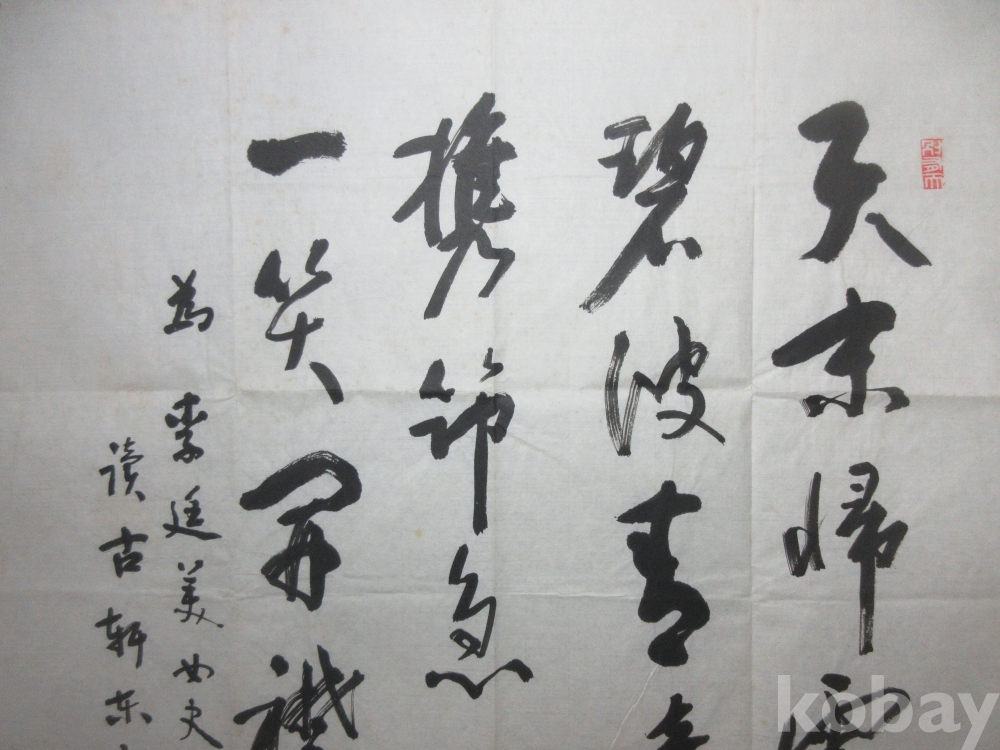 天末歸
碧波青
携節忽
一笑開
為李廷美女史
读古轩东
kobay